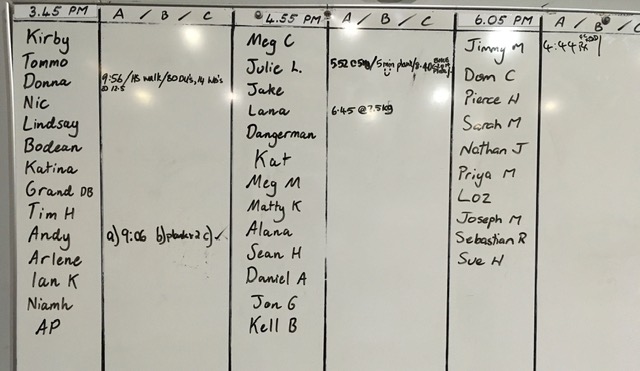 3.45 PM A / B / C
Kirby
Tommo
Donna 9:56/HS walk/80 DU's, 14 WB's
@ 12.5
Nic
Lindsay
Bodean
Katina
Grand DB
Tim H
Andy a) 9:06 b) plank x2 c) ✓
Arlene
Ian K
Niamh
AP
4.55 PM A / B / C
Meg C
Julie L. 5:52 @5kg/5min plank/8.40
Jake
Lana 6.45 @7.5kg
Dangerman
Kat
Meg M
Matty K
Alana
Sean H
Daniel A
Jon G
Kell B
6.05 PM A / B / C
Jimmy M 4:44 Rx
Dom C
Pierce H
Sarah M
Nathan J
Priya M
Loz
Joseph M
Sebastian R
Sue H